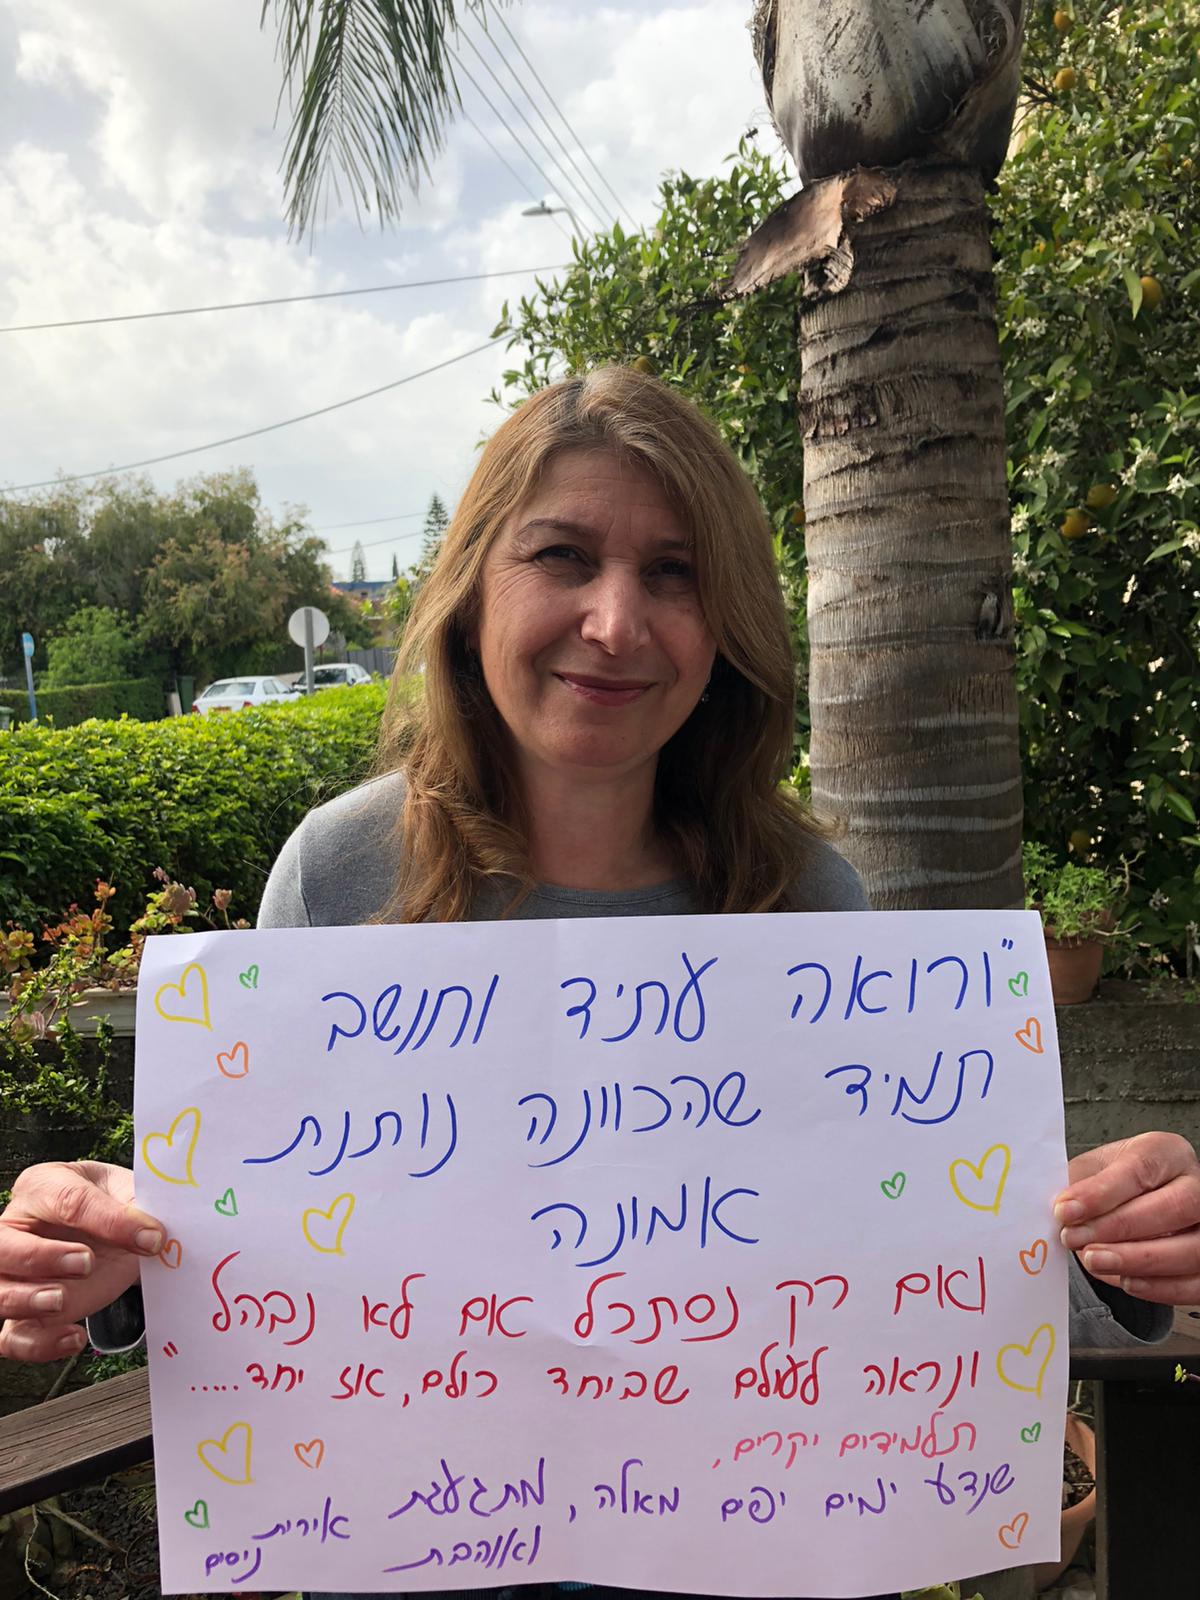 "ורואה עתיד וחושב
תמיד שהכוונה נותנת
אמונה
ואם רק נסתכל אם לא נבהל
ונראה לעולם שביחד כולם, אז יחד....."
תלמידים יקרים,
שנדע ימים יפים מאלה, מתגעגעת אירית
ואוהבת ניסים